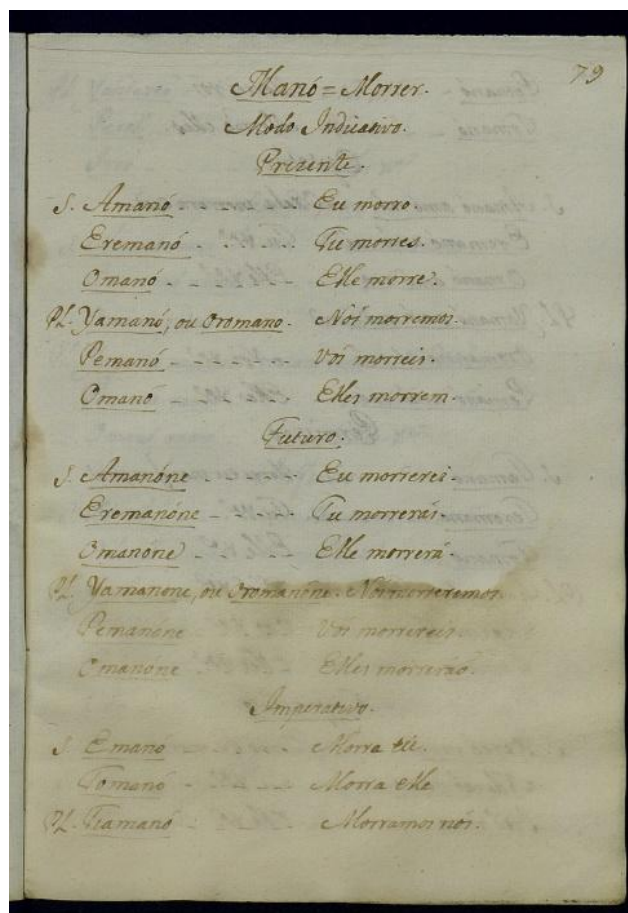 79
Manó = Morrer.
Modo Indicativo.
Prezente.
S. Amanó - - - Eu morro.
Eremanó - - - Tu morres.
Omanó - - - Elle morre.
Pl. Yamanó, ou Oromano. Nós morremos.
Pemanó - - - - - Vós morreis.
Omanó - - - - Elles morrem.
Futuro.
S. Amanóne - - - Eu morrerei
Eremanóne - - - Tu morrerás.
Omanóne - - - Elle morrerá.
Pl. Yamanone, ou Oromanóne. Nós morreremos.
Pemanóne - - - Vós morrereis.
Omanóne - - - Elles morrerão.
Imperativo.
S. Emanó - - - Morra tú.
Tomanó - - - Morra elle
Pl. Tiamanó - - - Morramos nós.